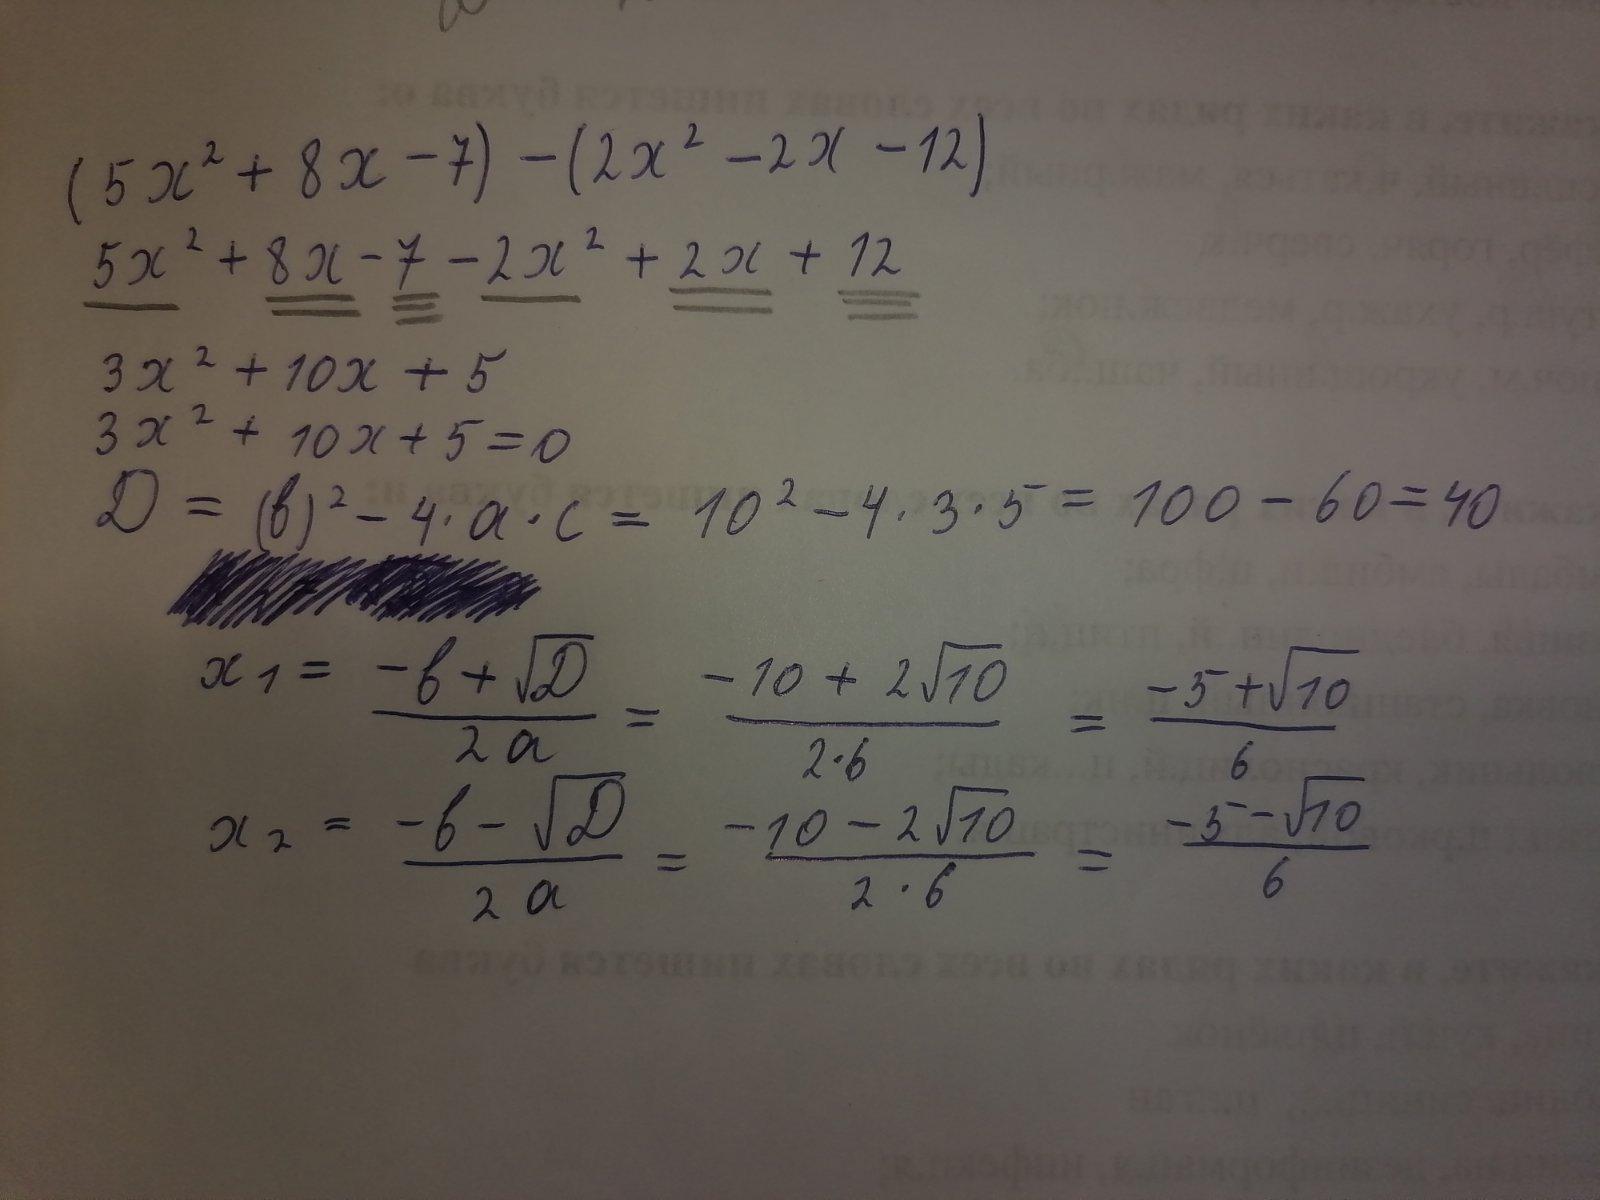 (5x² + 8x - 7) - (2x² - 2x - 12)
5x² + 8x - 7 - 2x² + 2x + 12
3x² + 10x + 5
3x² + 10x + 5 = 0
D = (b)² - 4·a·c = 10² - 4·3·5 = 100 - 60 = 40
x₁ = (-b + √D)/(2a) = (-10 + 2√10)/(2·6) = (-5 + √10)/6
x₂ = (-b - √D)/(2a) = (-10 - 2√10)/(2·6) = (-5 - √10)/6